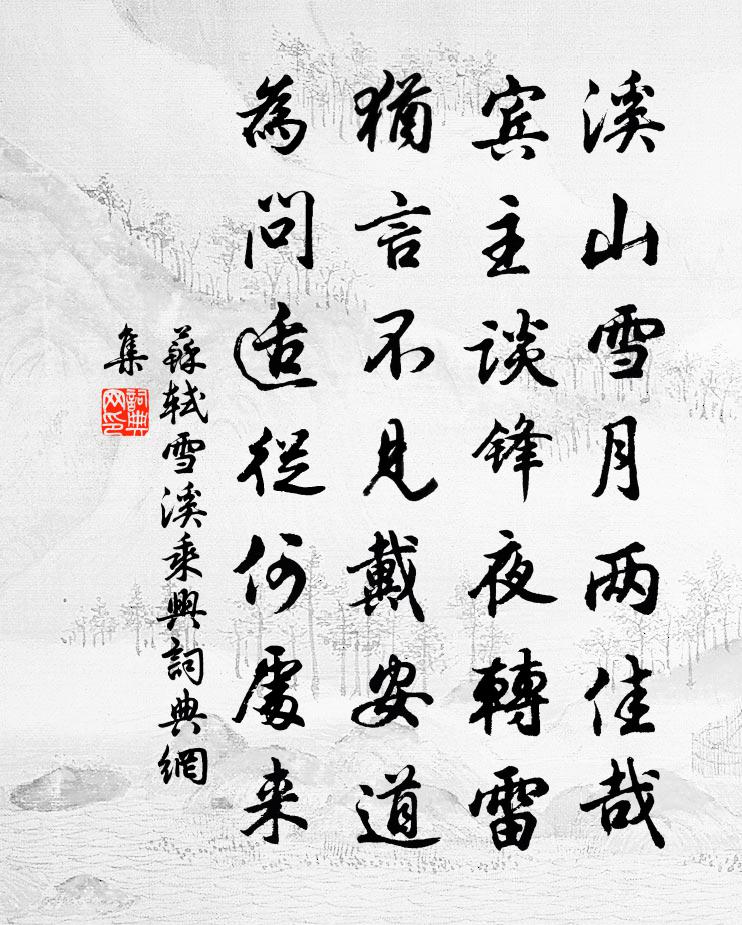 溪山雪月两佳哉
宾主談锋夜轉雷
猶言不見戴安道
為問适從何處来
蘇軾雪溪乘興詞典網
集
詞典
网印